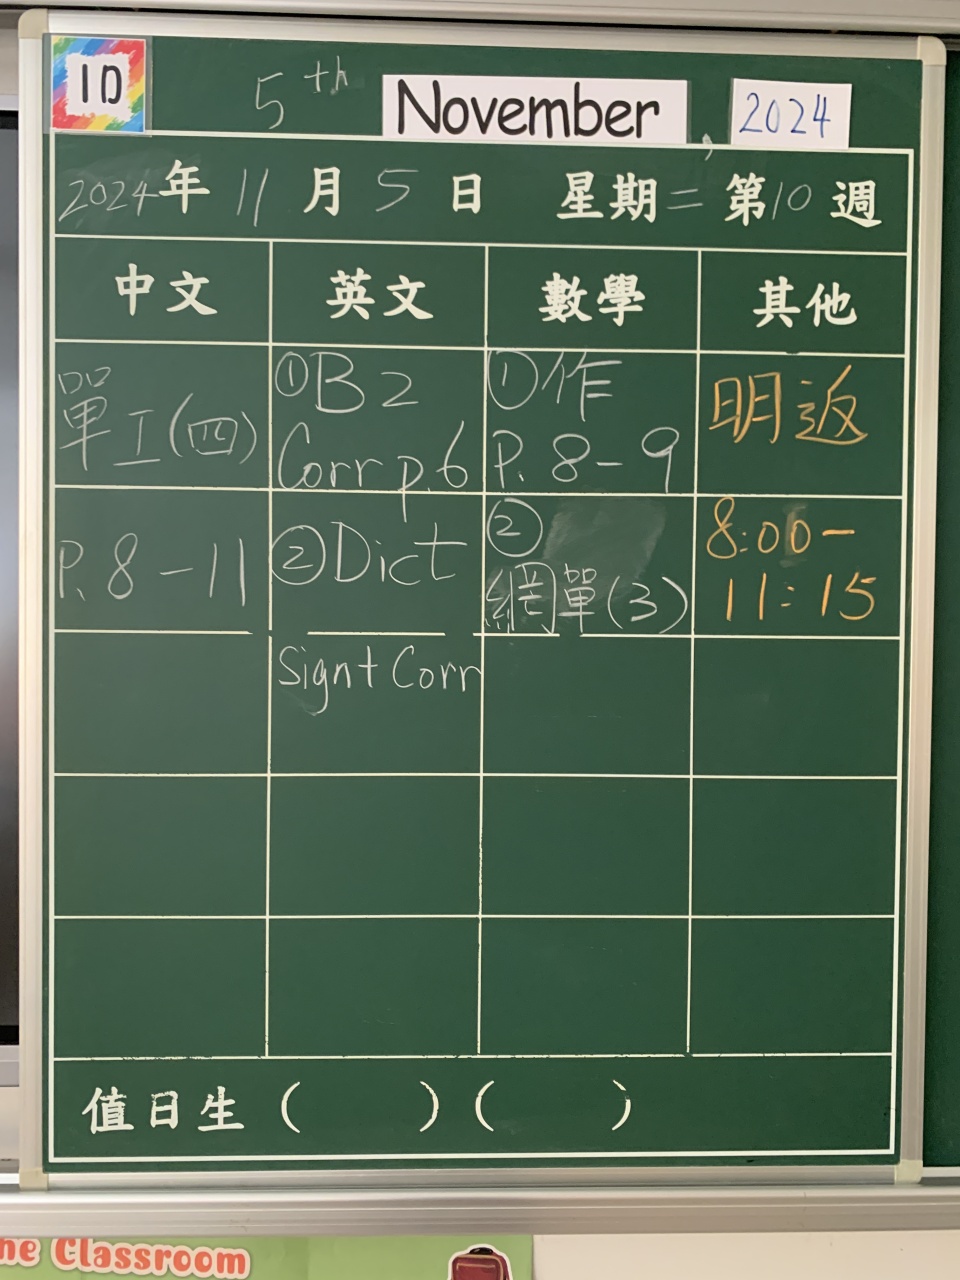 1D
5th November, 2024
2024年11月5日 星期二 第10週
中文 英文 數學 其他
單工(四)
P.8-11
①B2
Corr p.6
②Dict
Sign+Corr
①作
P.8-9
②
網單(3)
明返
8:00-
11:15
值日生( )( )
he Classroom